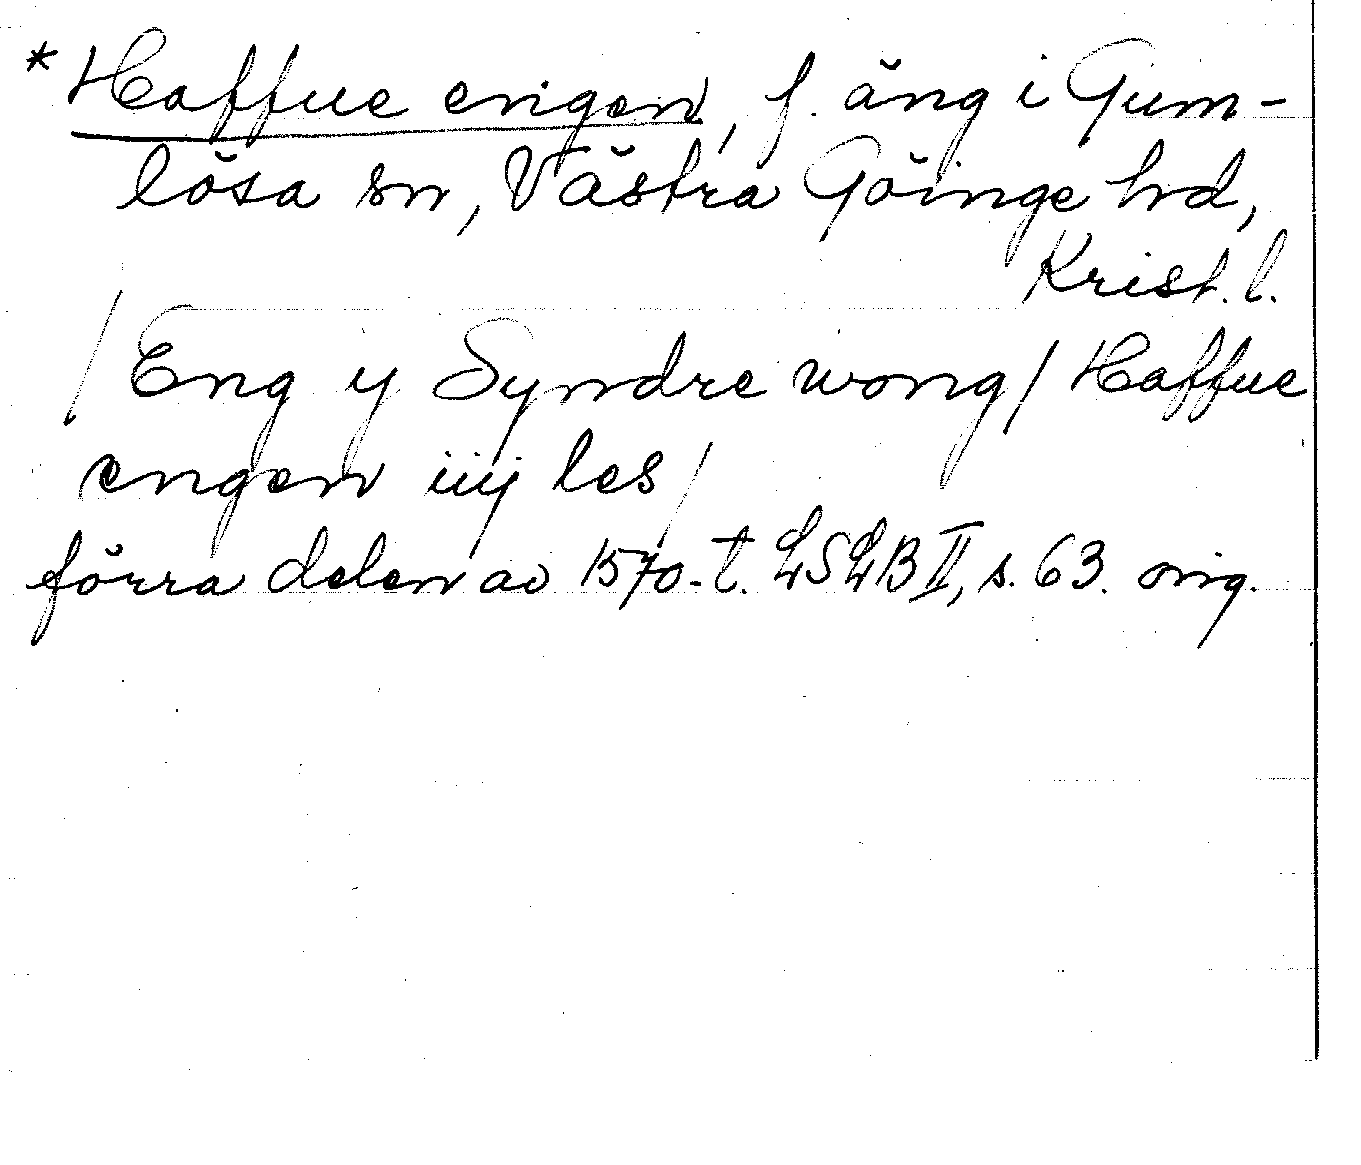 *Haffue engen, f. äng i Gum-
lösa sn, Västra Göinge hd,
Krist. l.
/ Eng y Syndre wong / Haffue
engen iiij les /
förra delen av 1570-t. LSLB II, s. 63. orig.